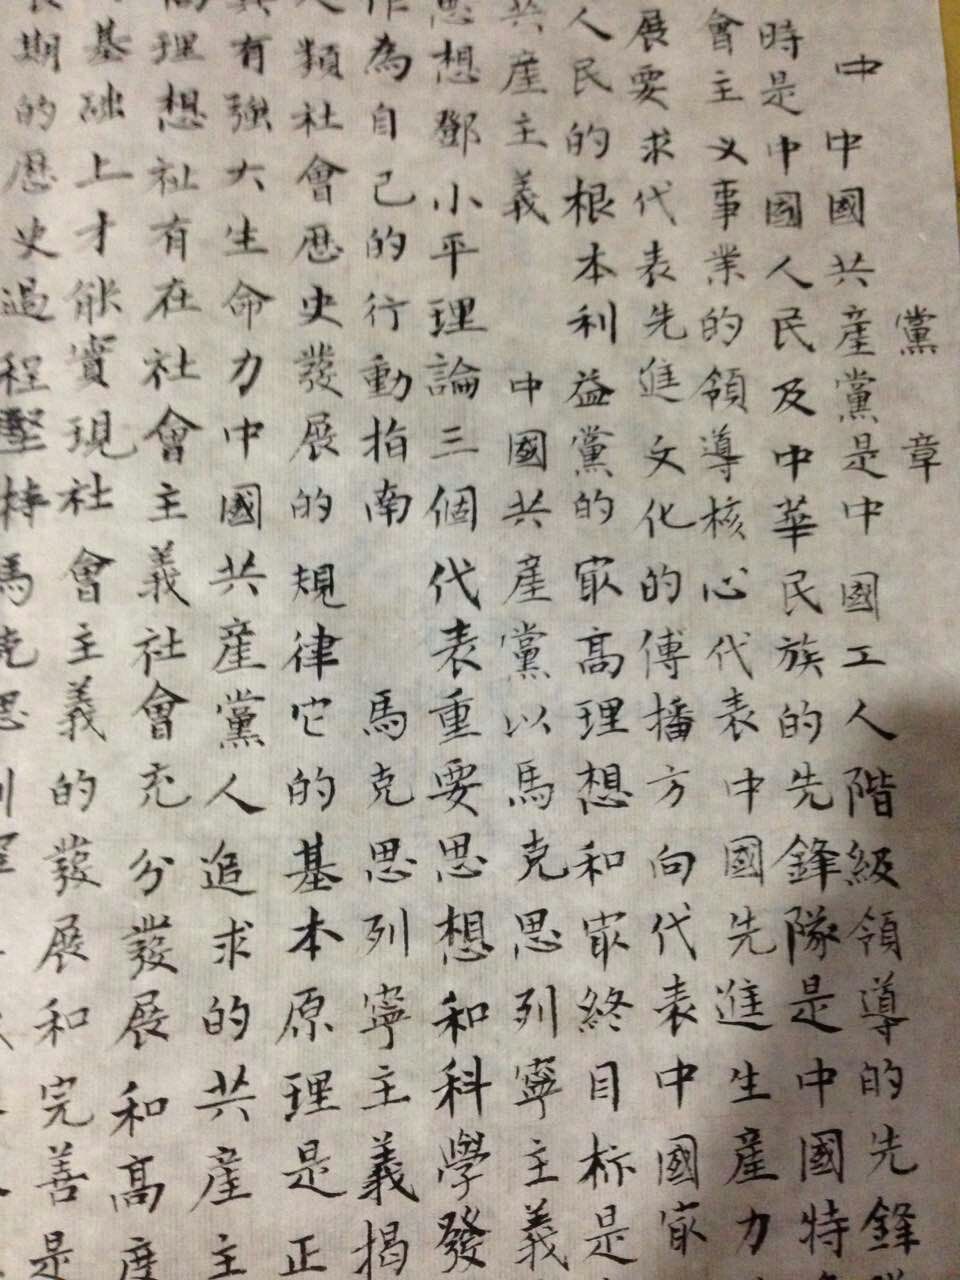 黨章
中 中國共產黨是中國工人階級領導的先鋒
時是中國人民及中華民族的先鋒隊是中國特
會主义事業的領導核心代表中國先進生產力
展要求代表先進文化的傅播方向代表中國㝡
人民的根本利益黨的㝡高理想和㝡終目标是
共產主義 中國共產黨以馬克思列寧主義
思想鄧小平理論三個代表重要思想和科學發
作為自己的行動指南 馬克思列寧主義揭
人類社會歷史發展的規律它的基本原理是正
有強大生命力中國共產黨人追求的共產主
高理想祉有在社會主義社會充分發展和高度
基础上才能實現社會主義的發展和完善是
期的歷史過程堅持馬克思列